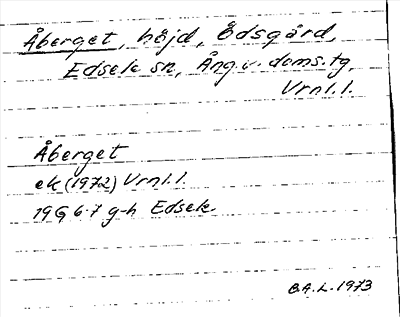 Åberget, höjd, Ödsgård,
Edsele sn, Ång.v. doms.tg,
Vrnl.l.
Åberget
ek (1972) Vrnl.l.
19G 6-7 g-h Edsele
B.A.L. 1973